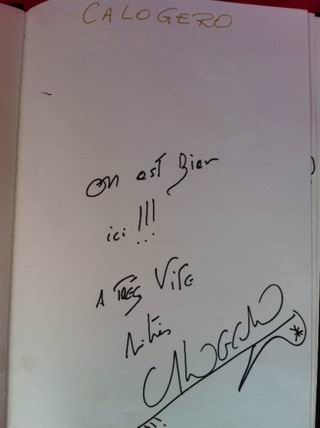 CALOGERO
On est Bien
ici !!!
A TRÈS VITE
Amitiés
CALOGERO
!!!